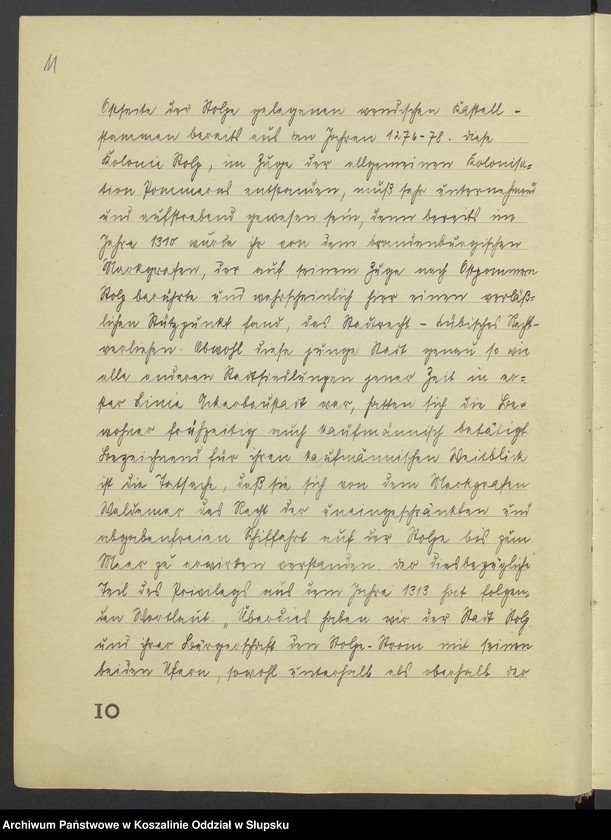 11
Ostseite der Stolpe gelegenen wendischen Kastell -
stammen bereits aus den Jahren 1276-78. Diese
Kolonie Stolp, im Zuge der allgemeinen Kolonisa=
tion Pommerns entstanden, muß sehr unternehmend
und aufstrebend gewesen sein, denn bereits im
Jahre 1310 wurde ihr von dem brandenburgischen
Markgrafen, der auf seinem Zuge nach Ostpommern
Stolp berührte und wahrscheinlich hier einen verläß=
lichen Stützpunkt fand, das Stadtrecht - lübisches Recht-
verliehen. Obwohl diese junge Stadt genau so wie
alle anderen Stadtsiedlungen jener Zeit in er=
ster Linie Ackerbaustadt war, hatten sich die Be=
wohner frühzeitig auch kaufmännisch betätigt
Bezeichnend für ihren kaufmännischen Weitblick
ist die Tatsache, daß sie sich von dem Markgrafen
Waldemar das Recht der uneingeschränkten und
abgabenfreien Schiffahrt auf der Stolpe bis zum
Meer zu erwirken verstanden. Der diesbezügliche
Teil des Privilegs aus dem Jahre 1313 hat folgen=
den Wortlaut: „Überdies haben wir der Stadt Stolp
und ihrer Bürgerschaft den Stolpe-Strom mit seinen
beiden Ufern, sowohl unterhalb als oberhalb der
10
Archiwum Państwowe w Koszalinie Oddział w Słupsku